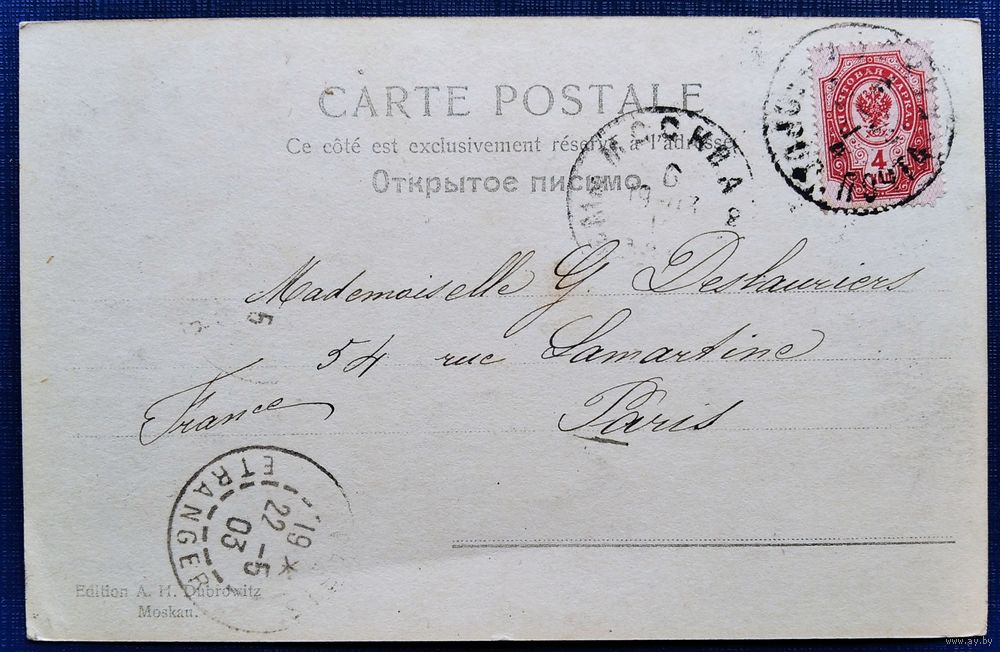 CARTE POSTALE
Ce côté est exclusivement réservé à l'adresse
Открытое письмо.
ПОЧТОВАЯ МАРКА
4
ПОЧТА
МОСКВА
Mademoiselle G. Deslauriers
5
54 rue Lamartine
Paris
France
ETRANGER
19 *
22 - 5
03
Edition A. H. Dubrowitz
Moskau.
www.ay.by